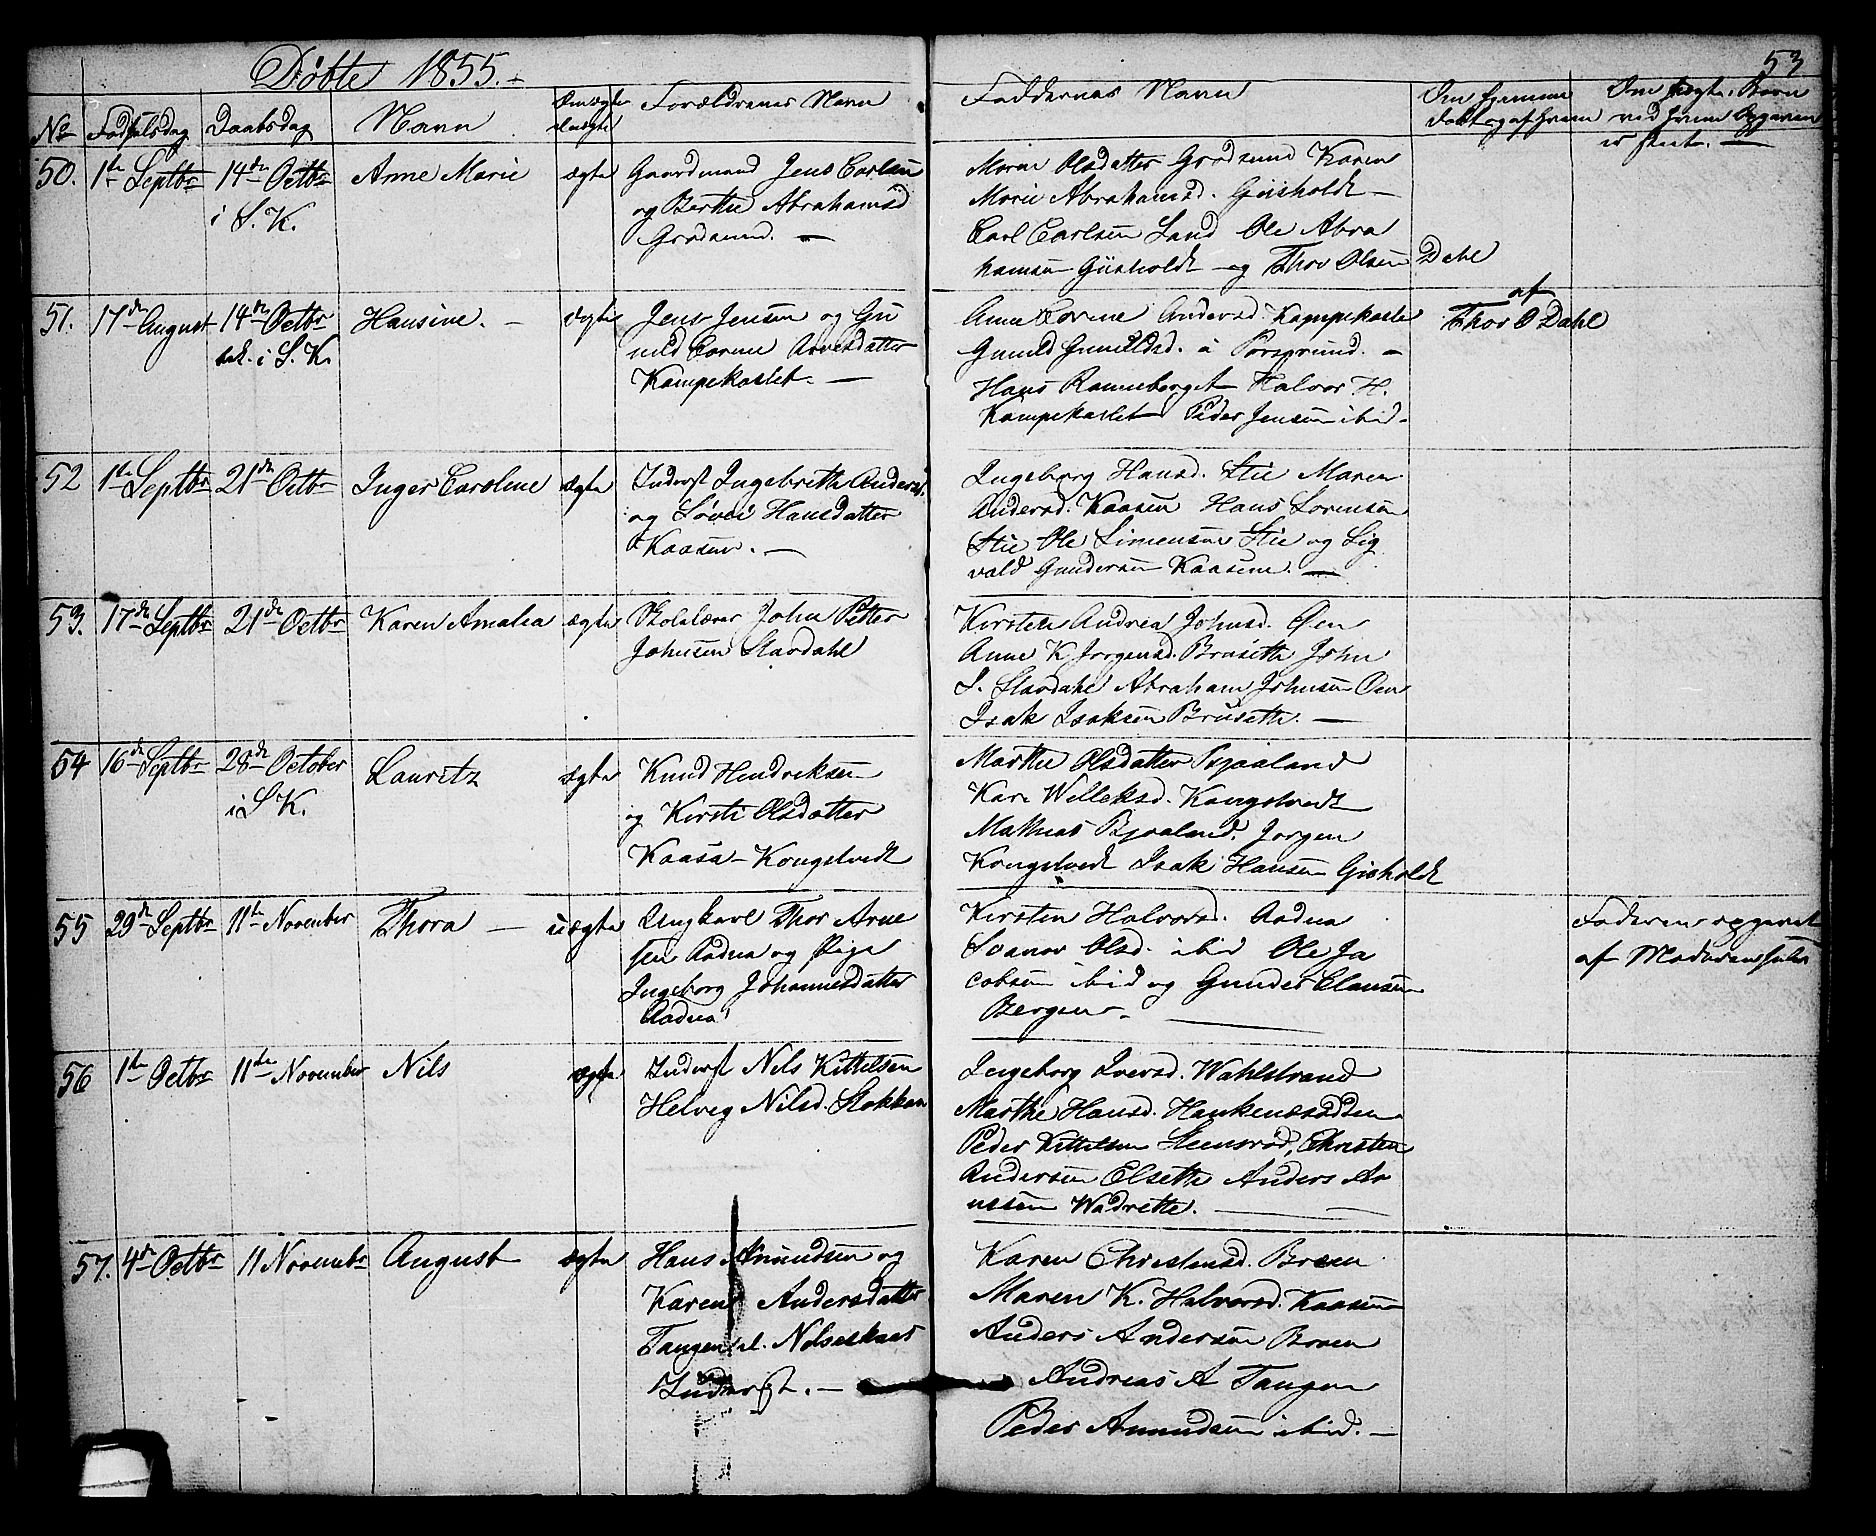 Døbte 1855.
53
No Fødselsdag Daabsdag Navn Om ægte Uægte Forældrenes Navn Faddernes Navn Om hjemme døbt og af hvem Om uægte Børn ved hvem Opgaven er skeet.
50. 1te Septbr 14de Octbr Anne Marie ægte Gaardmand Jens Carlsen
i S. K.
og Berthe Abrahamsd
Grodsund.
Maren Olsdatter Grodsund Karen
Marie Abrahamsd. Gisholdt
Carl Carlsen Sand Ole Abra
hamsen Gisholdt og Thor Olsen Dahl
51. 17de August 14de Octbr Hansine. ægte Jens Jensen og Gu
bek. i S. K.
nild Corine Arnesdatter
Kampekastet.
Anne Corine Andersd. Kampekaste
Gunild Gunildsd. a Porsgrund.
Hans Ramnberget Halvor H.
Kampekastet Peder Jensen ibid.
af
Thor O Dahl
52 1te Septbr 21de Octbr Inger Caroline ægte Inderst Ingebreth Anders.
og Søvei Hansdatter
Kaasen.
Ingeborg Hansd. Stie Maren
Andersd. Kaasen Hans Sorensen
Stie Ole Simensen Stie og Sig
vald Gundersen Kaasene.
53. 17de Septbr 21de Octbr Karen Amalia ægte Skolelærer John Petter
Johnsen Slavdahl
Kirsten Andrea Johnsd. Øen
Anne K Jorgensd. Brusette John
J. Slavdahl Abraham Johnsen Øen
Isak Isaksen Brusette.
54 16de Septbr 28de October Lauritz ægte Knud Hendriksen
i S K.
og Kirsti Olsdatter
Kaasa-Kongstvedt
Marthe Olsdatter Bjaaland
Kari Welleksd. Kongstvedt
Mathias Bjaaland. Jorgen
Kongstvedt Isak Hansen Gisholdt
55 29de Septbr 11te November Thora uægte Ungkarl Thor Arne
sen Aadna og Pige
Ingeborg Johannesdatter
Aadna
Kirsten Halvorsd. Aadna
Olsd. ibid Ole Ja
cobsen ibid og Gunder Clausen
Bergene.
Faderen opgivet
af Moderen selv
56 1te Octbr 11te November Nils ægte Inderst Nils Kittelsen
Helvig Nilsd. Stokken
Ingeborg Iversd. Wahlstrand
Marthe Hansd. Hankenæsodden
Peder Kittelsen Steensrød, Christen
Andersen Elsette Anders Ar
nesen Wadrette.
57. 4de Octbr 11 Novembr August ægte Hans Amundsen og
Karen Andersdatter
Tangen el. Nilseskaas
Inderst.
Karen Christensd. Broen
Maren K. Halvorsd. Kaasene
Anders Andersen Broen
Andreas A Tangen
Peder Amundsen ibid.